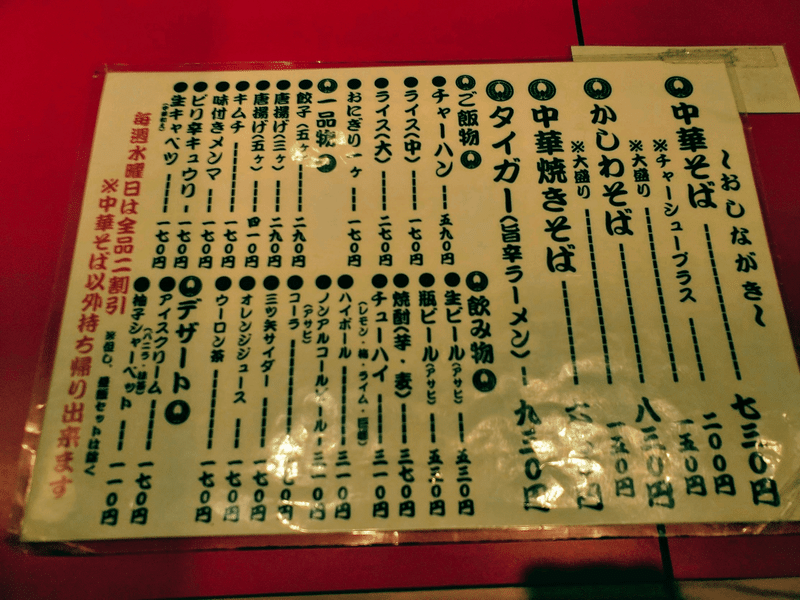 ～おしながき～
中華そば 七三〇円
※チャーシュープラス 二〇〇円
※大盛り 一五〇円
かしわそば 八三〇円
※大盛り 一五〇円
中華焼きそば
タイガー(旨辛ラーメン) 九三〇円
ご飯物
チャーハン 五九〇円
ライス(中) 一七〇円
ライス(大) 二七〇円
おにぎり一ヶ 一七〇円
一品物
餃子(五ヶ) 二九〇円
唐揚げ(三ヶ) 二九〇円
唐揚げ(五ヶ) 四一〇円
キムチ 一七〇円
味付きメンマ 一七〇円
ピリ辛キュウリ 一七〇円
生キャベツ 一七〇円
飲み物
生ビール(アサヒ) 五三〇円
瓶ビール(アサヒ) 五五〇円
焼酎(芋・麦) 三七〇円
チューハイ 三一〇円
ハイボール 三一〇円
ノンアルコールビール 三一〇円
(アサヒ)
コーラ
三ツ矢サイダー
オレンジジュース 一七〇円
ウーロン茶 一七〇円
デザート
アイスクリーム 一七〇円
柚子シャーベット 一一〇円
毎週水曜日は全品二割引
※但し、昼飯セットは除く
※中華そば以外持ち帰り出来ます